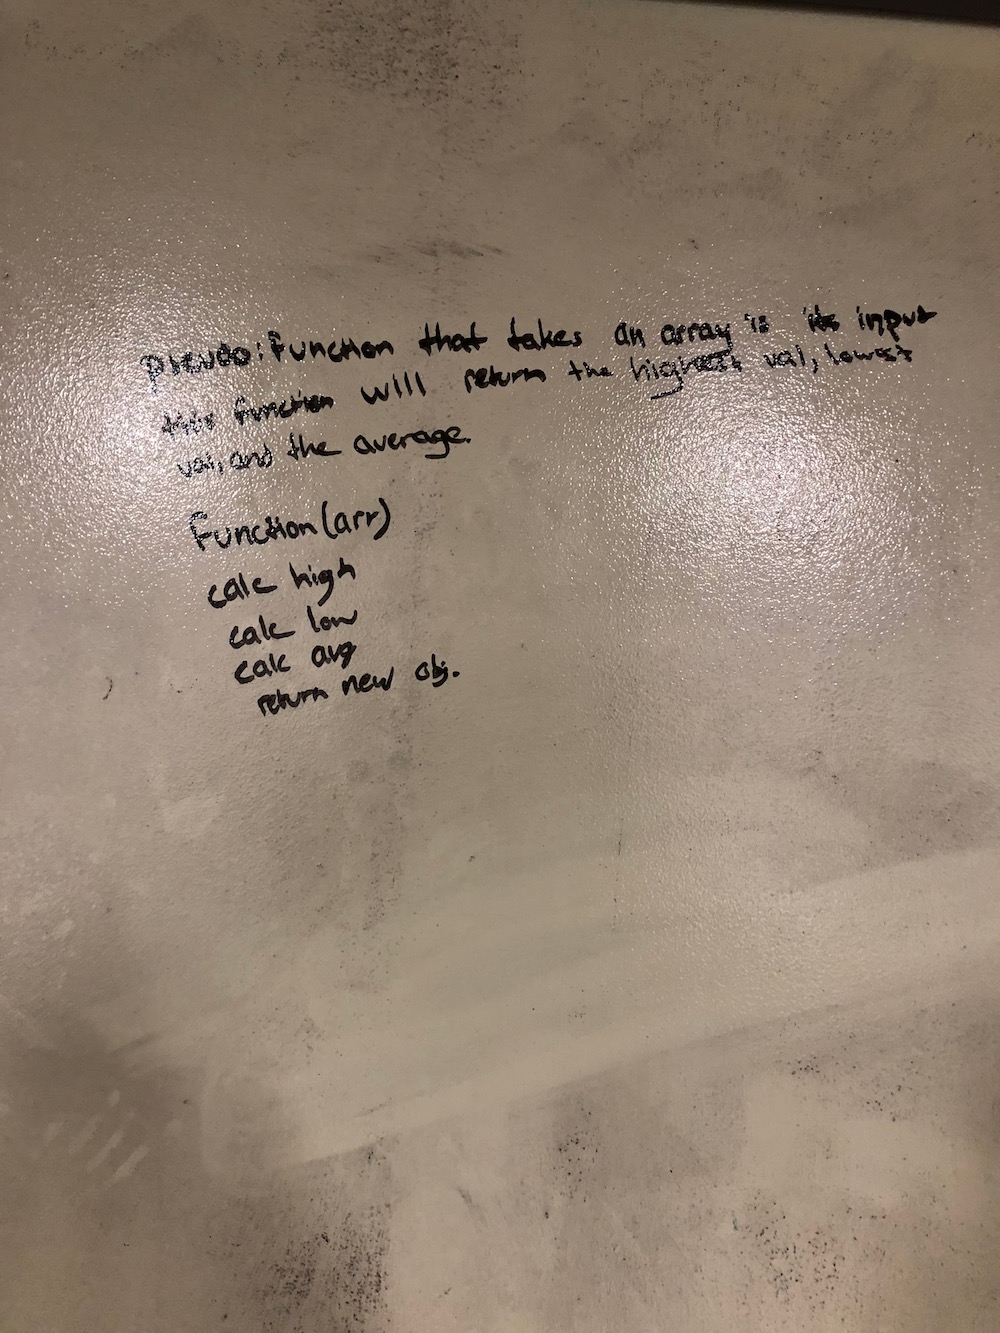 pseudo: Function that takes an array is its input
this function will return the highest val, lowest
val, and the average.
Function(arr)
calc high
calc low
calc avg
return new obj.